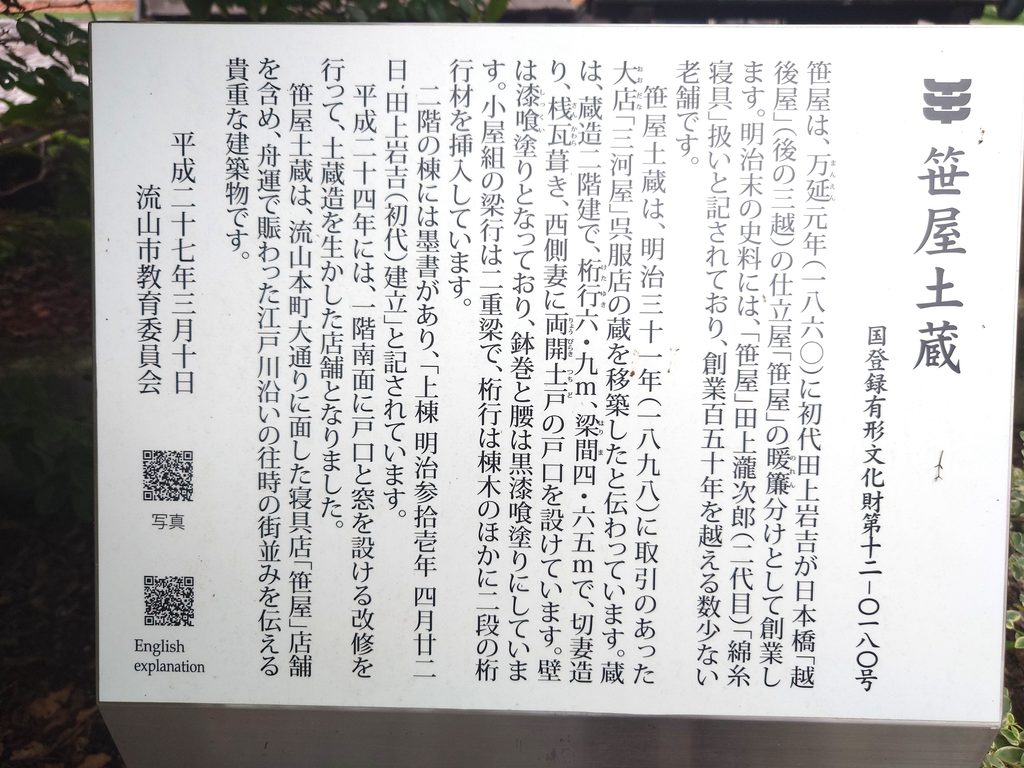 笹屋土蔵
国登録有形文化財第十二－〇一八〇号
笹屋は、万延元年（一八六〇）に初代田上岩吉が日本橋「越
後屋」（後の三越）の仕立屋「笹屋」の暖簾分けとして創業し
ます。明治末の史料には、「笹屋」田上瀧次郎（二代目）「綿糸
寝具」扱いと記されており、創業百五十年を越える数少ない
老舗です。
笹屋土蔵は、明治三十一年（一八九八）に取引のあった
大店「三河屋」呉服店の蔵を移築したと伝わっています。蔵
は、蔵造二階建で、桁行六・九ｍ、梁間四・六五ｍで、切妻造
り、桟瓦葺き、西側妻に両開土戸の戸口を設けています。壁
は漆喰塗りとなっており、鉢巻と腰は黒漆喰塗りにしていま
す。小屋組の梁行は二重梁で、桁行は棟木のほかに二段の桁
行材を挿入しています。
二階の棟には墨書があり、「上棟 明治参拾壱年 四月廿二
日、田上岩吉（初代）建立」と記されています。
平成二十四年には、一階南面に戸口と窓を設ける改修を
行って、土蔵造を生かした店舗となりました。
笹屋土蔵は、流山本町大通りに面した寝具店「笹屋」店舗
を含め、舟運で賑わった江戸川沿いの往時の街並みを伝える
貴重な建築物です。
平成二十七年三月十日
流山市教育委員会
写真
English
explanation